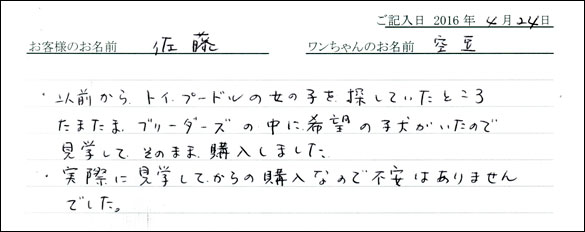 ご記入日 2016年 4月24日
お客様のお名前 佐藤 ワンちゃんのお名前 空豆
・以前から、トイ・プードルの女の子を探していたところ
たまたま、ブリーダーズの中に、希望の子犬がいたので
見学して、そのまま、購入しました。
・実際に見学してからの購入なので不安はありません
でした。